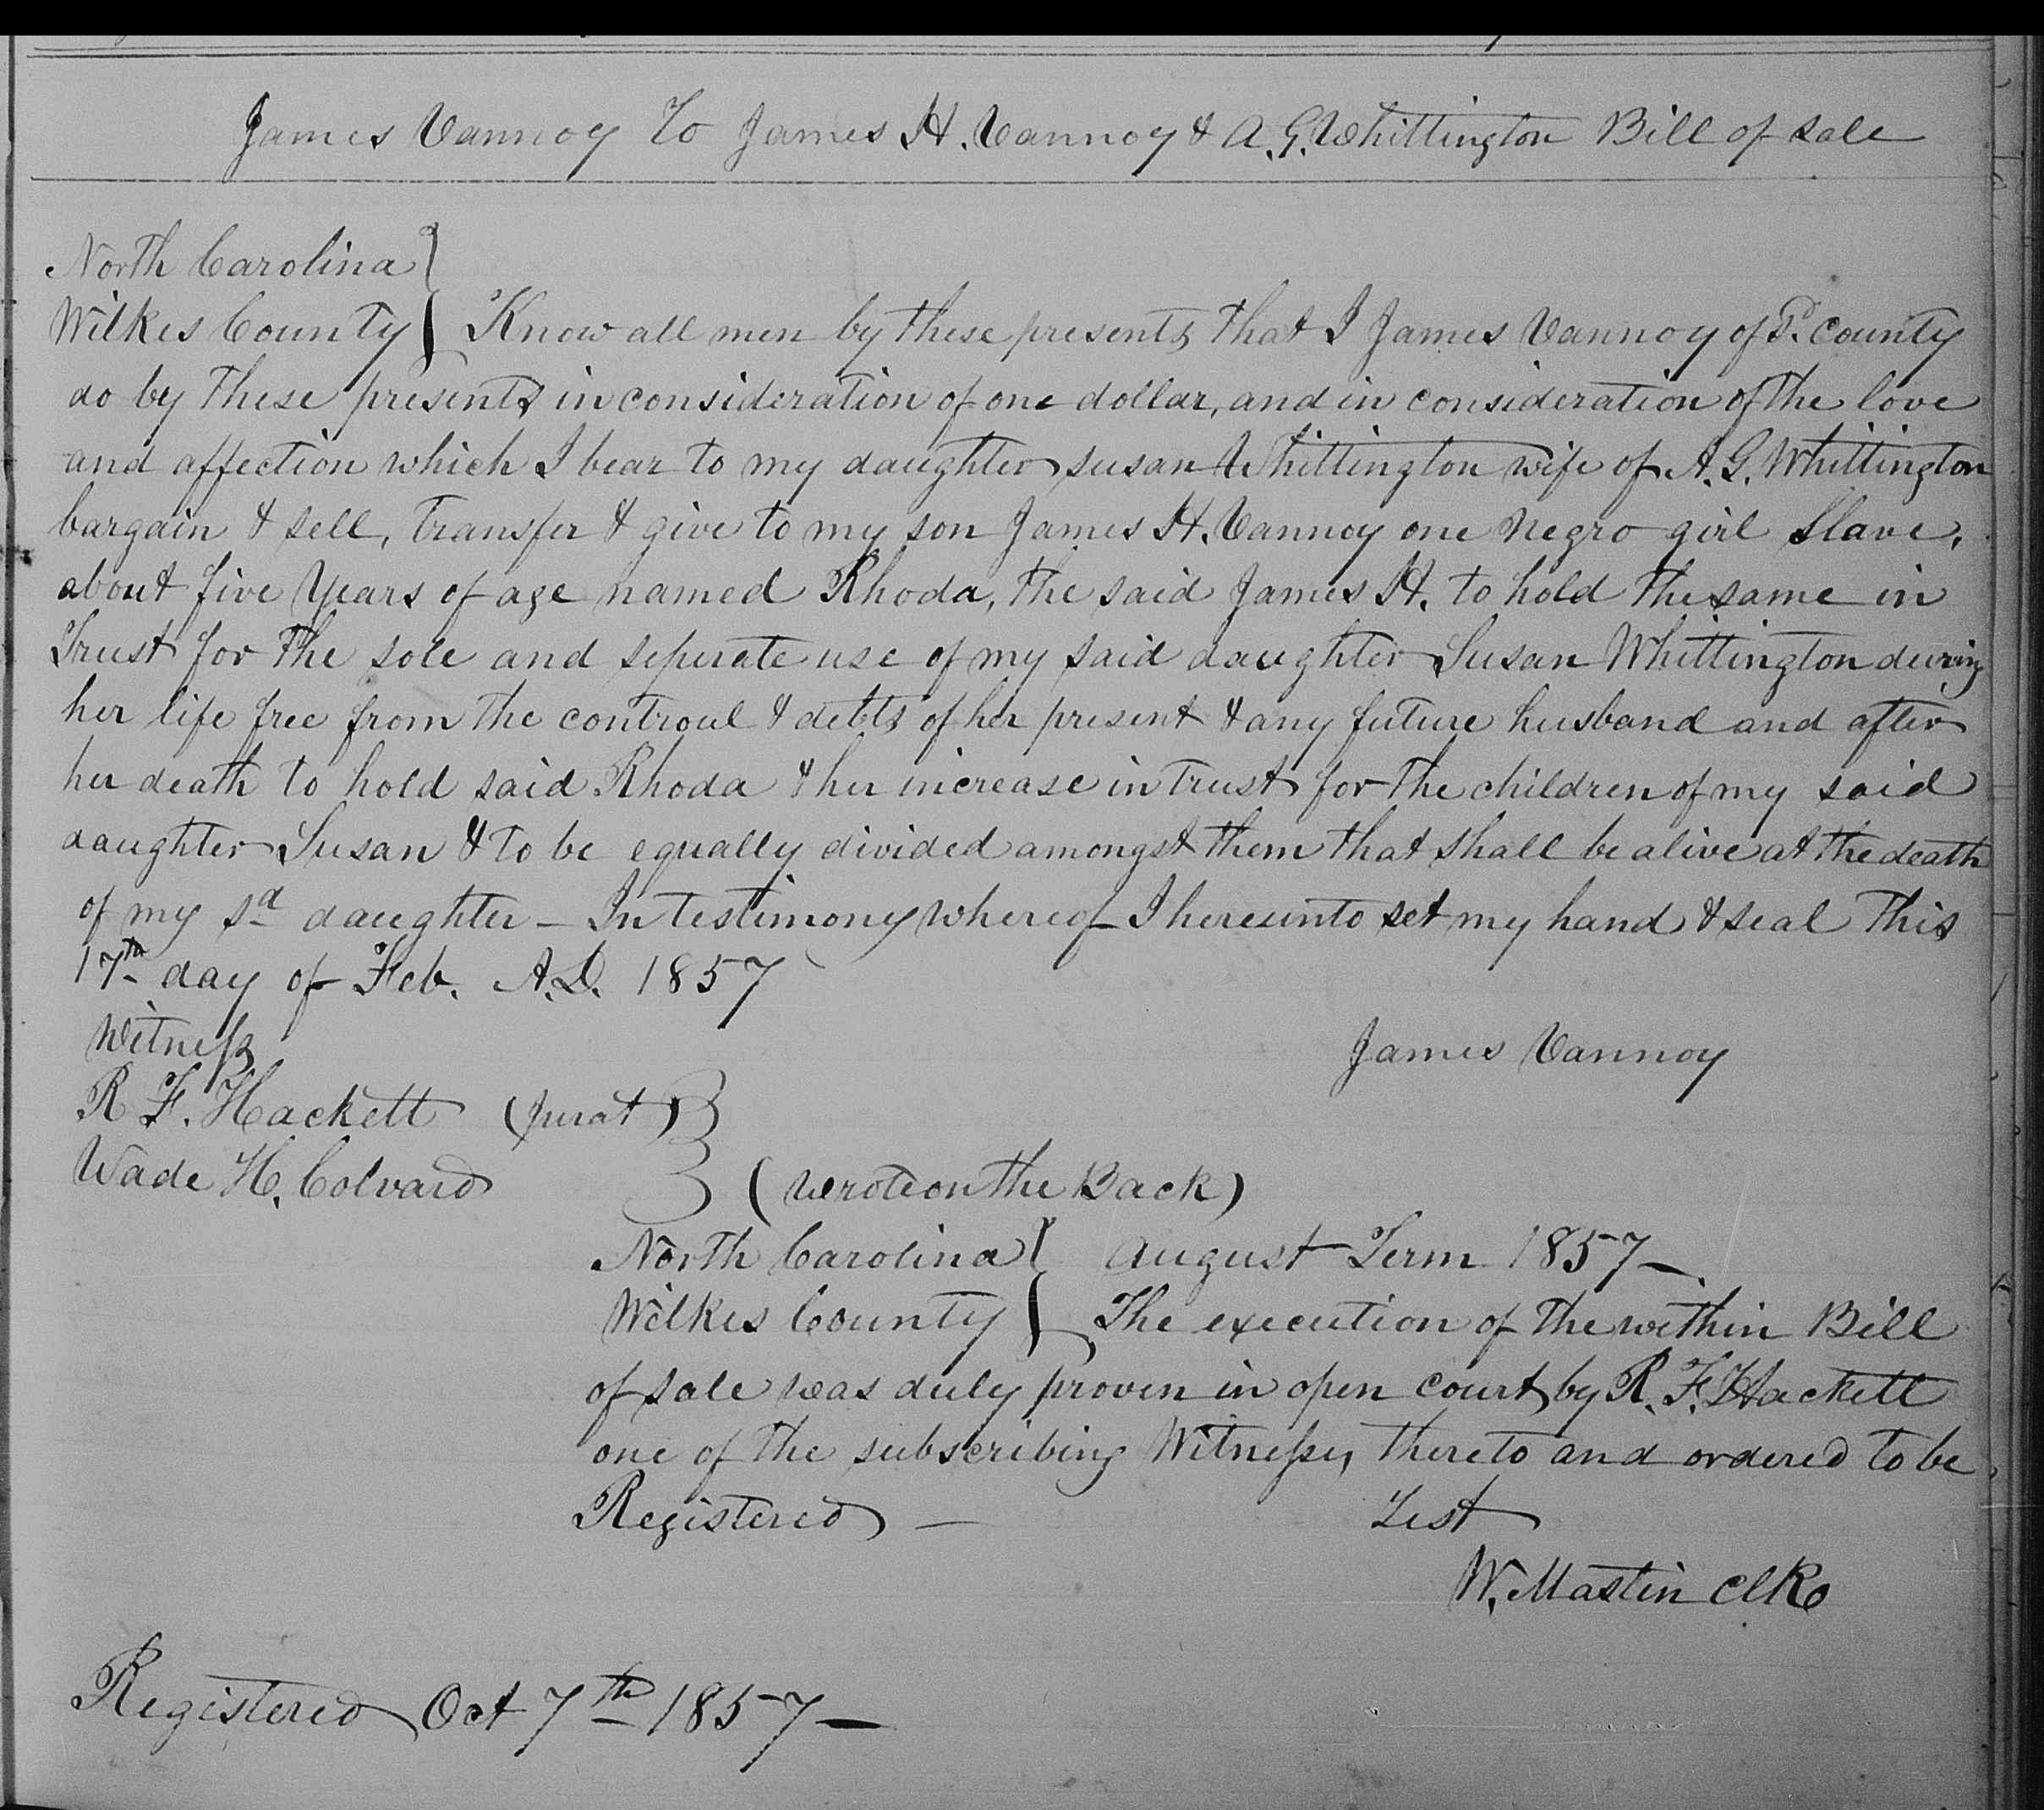 James Vannoy To James H. Vannoy & A. G. Whittington Bill of sale
North Carolina }
Wilkes County } Know all men by these presents that I James Vannoy of Sd. County
do by these presents in consideration of one dollar, and in consideration of the love
and affection which I bear to my daughter susan Whittington wife of A. G. Whittington
bargain & sell, transfer & give to my son James H. Vannoy one negro girl slave,
about five years of age named Rhoda, the said James H. to hold the same in
Trust for the sole and seperate use of my said daughter Susan Whittington during
her life free from the controul & debts of her present & any future husband and after
her death to hold said Rhoda & her increase in trust for the children of my said
daughter Susan & to be equally divided amongst them that shall be alive at the death
of my sd daughter – In testimony whereof I hereunto set my hand & seal this
17th day of Feb. A.D. 1857
Witness
James Vannoy
R F. Hackett (Jurat) }
Wade H. Colvard } (Wrote on the Back)
North Carolina } August Term 1857 –
Wilkes County } The execution of the within Bill
of sale was duly proven in open court by R. F. Hackett
one of the subscribing Witnesses thereto and ordered to be
Registered – Test
W. Mastin Clk
Registered Oct 7th 1857 –